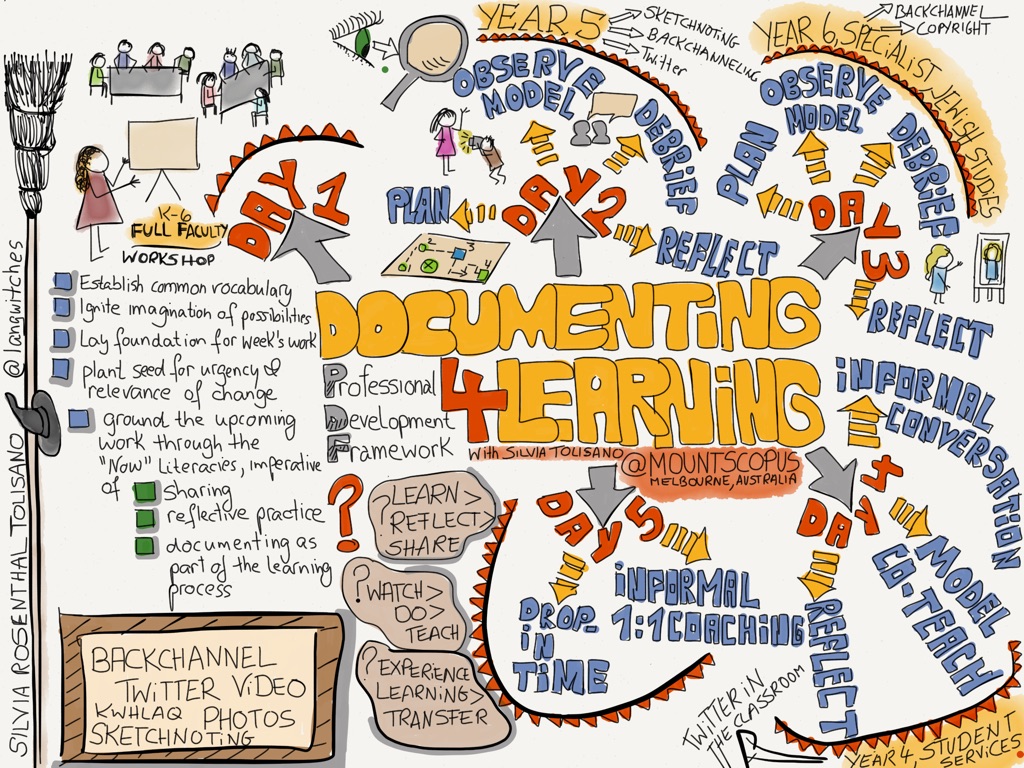 SILVIA ROSENTHAL TOLISANO @langwitches
DOCUMENTING
4 LEARNING
Professional
Development
Framework
With SILVIA TOLISANO
@MOUNTSCOPUS
MELBOURNE, AUSTRALIA
DAY 1
K-6
FULL FACULTY
WORKSHOP
Establish common vocabulary
Ignite imagination of possibilities
Lay foundation for week's work
plant seed for urgency &
relevance of change
ground the upcoming
work through the
"Now" Literacies, imperative
of
Sharing
reflective practice
documenting as
part of the learning
process
BACKCHANNEL
TWITTER VIDEO
KWHLAQ PHOTOS
SKETCHNOTING
?
? LEARN>
REFLECT>
SHARE
? WATCH>
DO>
TEACH
? EXPERIENCE
LEARNING>
TRANSFER
YEAR 5
SKETCHNOTING
BACKCHANNELING
Twitter
DAY 2
PLAN
2
3
1
3 4
4
OBSERVE
MODEL
DEBRIEF
REFLECT
YEAR 6, SPECIALIST JEWISH STUDIES
BACKCHANNEL
COPYRIGHT
DAY 3
PLAN
OBSERVE
MODEL
DEBRIEF
REFLECT
DAY 4
INFORMAL
CONVERSATION
MODEL
CO-TEACH
REFLECT
YEAR 4, STUDENT
SERVICES
TWITTER IN
THE CLASSROOM
DAY 5
DROP-
IN
TIME
INFORMAL
1:1 COACHING